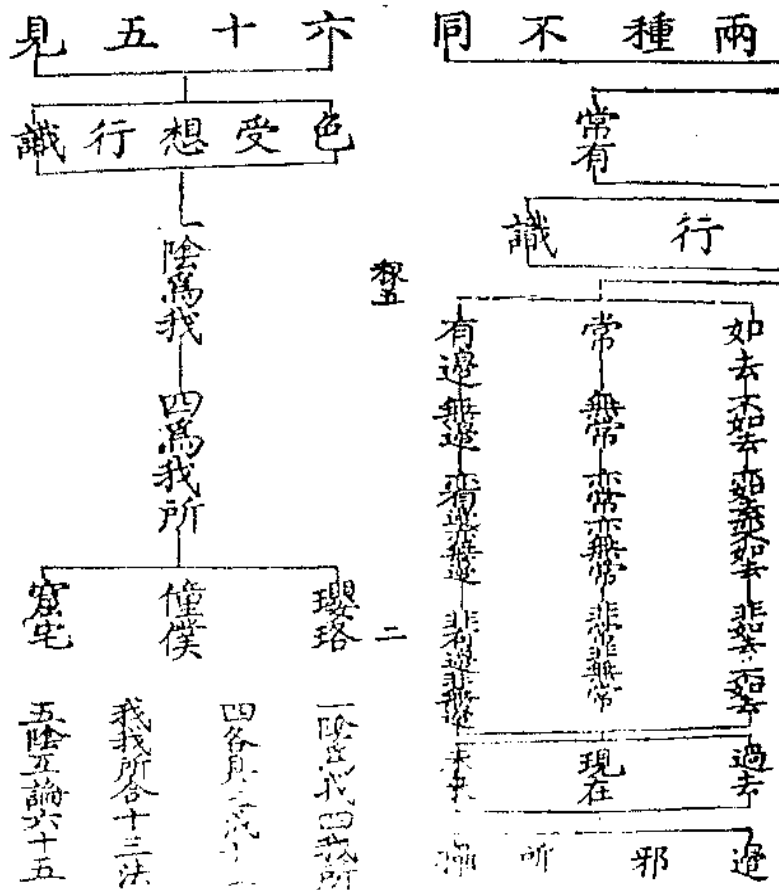 兩種不同
常有
行識
如去 不如去 亦如去亦不如去 非如去非不如去
常 無常 亦常亦無常 非常非無常
有邊 無邊 亦有邊亦無邊 非有邊非無邊
過去
現在
未來
邊邪所
稼五
二
六十五見
色受想行識
一陰為我
四為我所
瓔珞
僮僕
窟宅
一陰為我四我所
四各具三成十二
我我所合十三法
五陰互論六十五